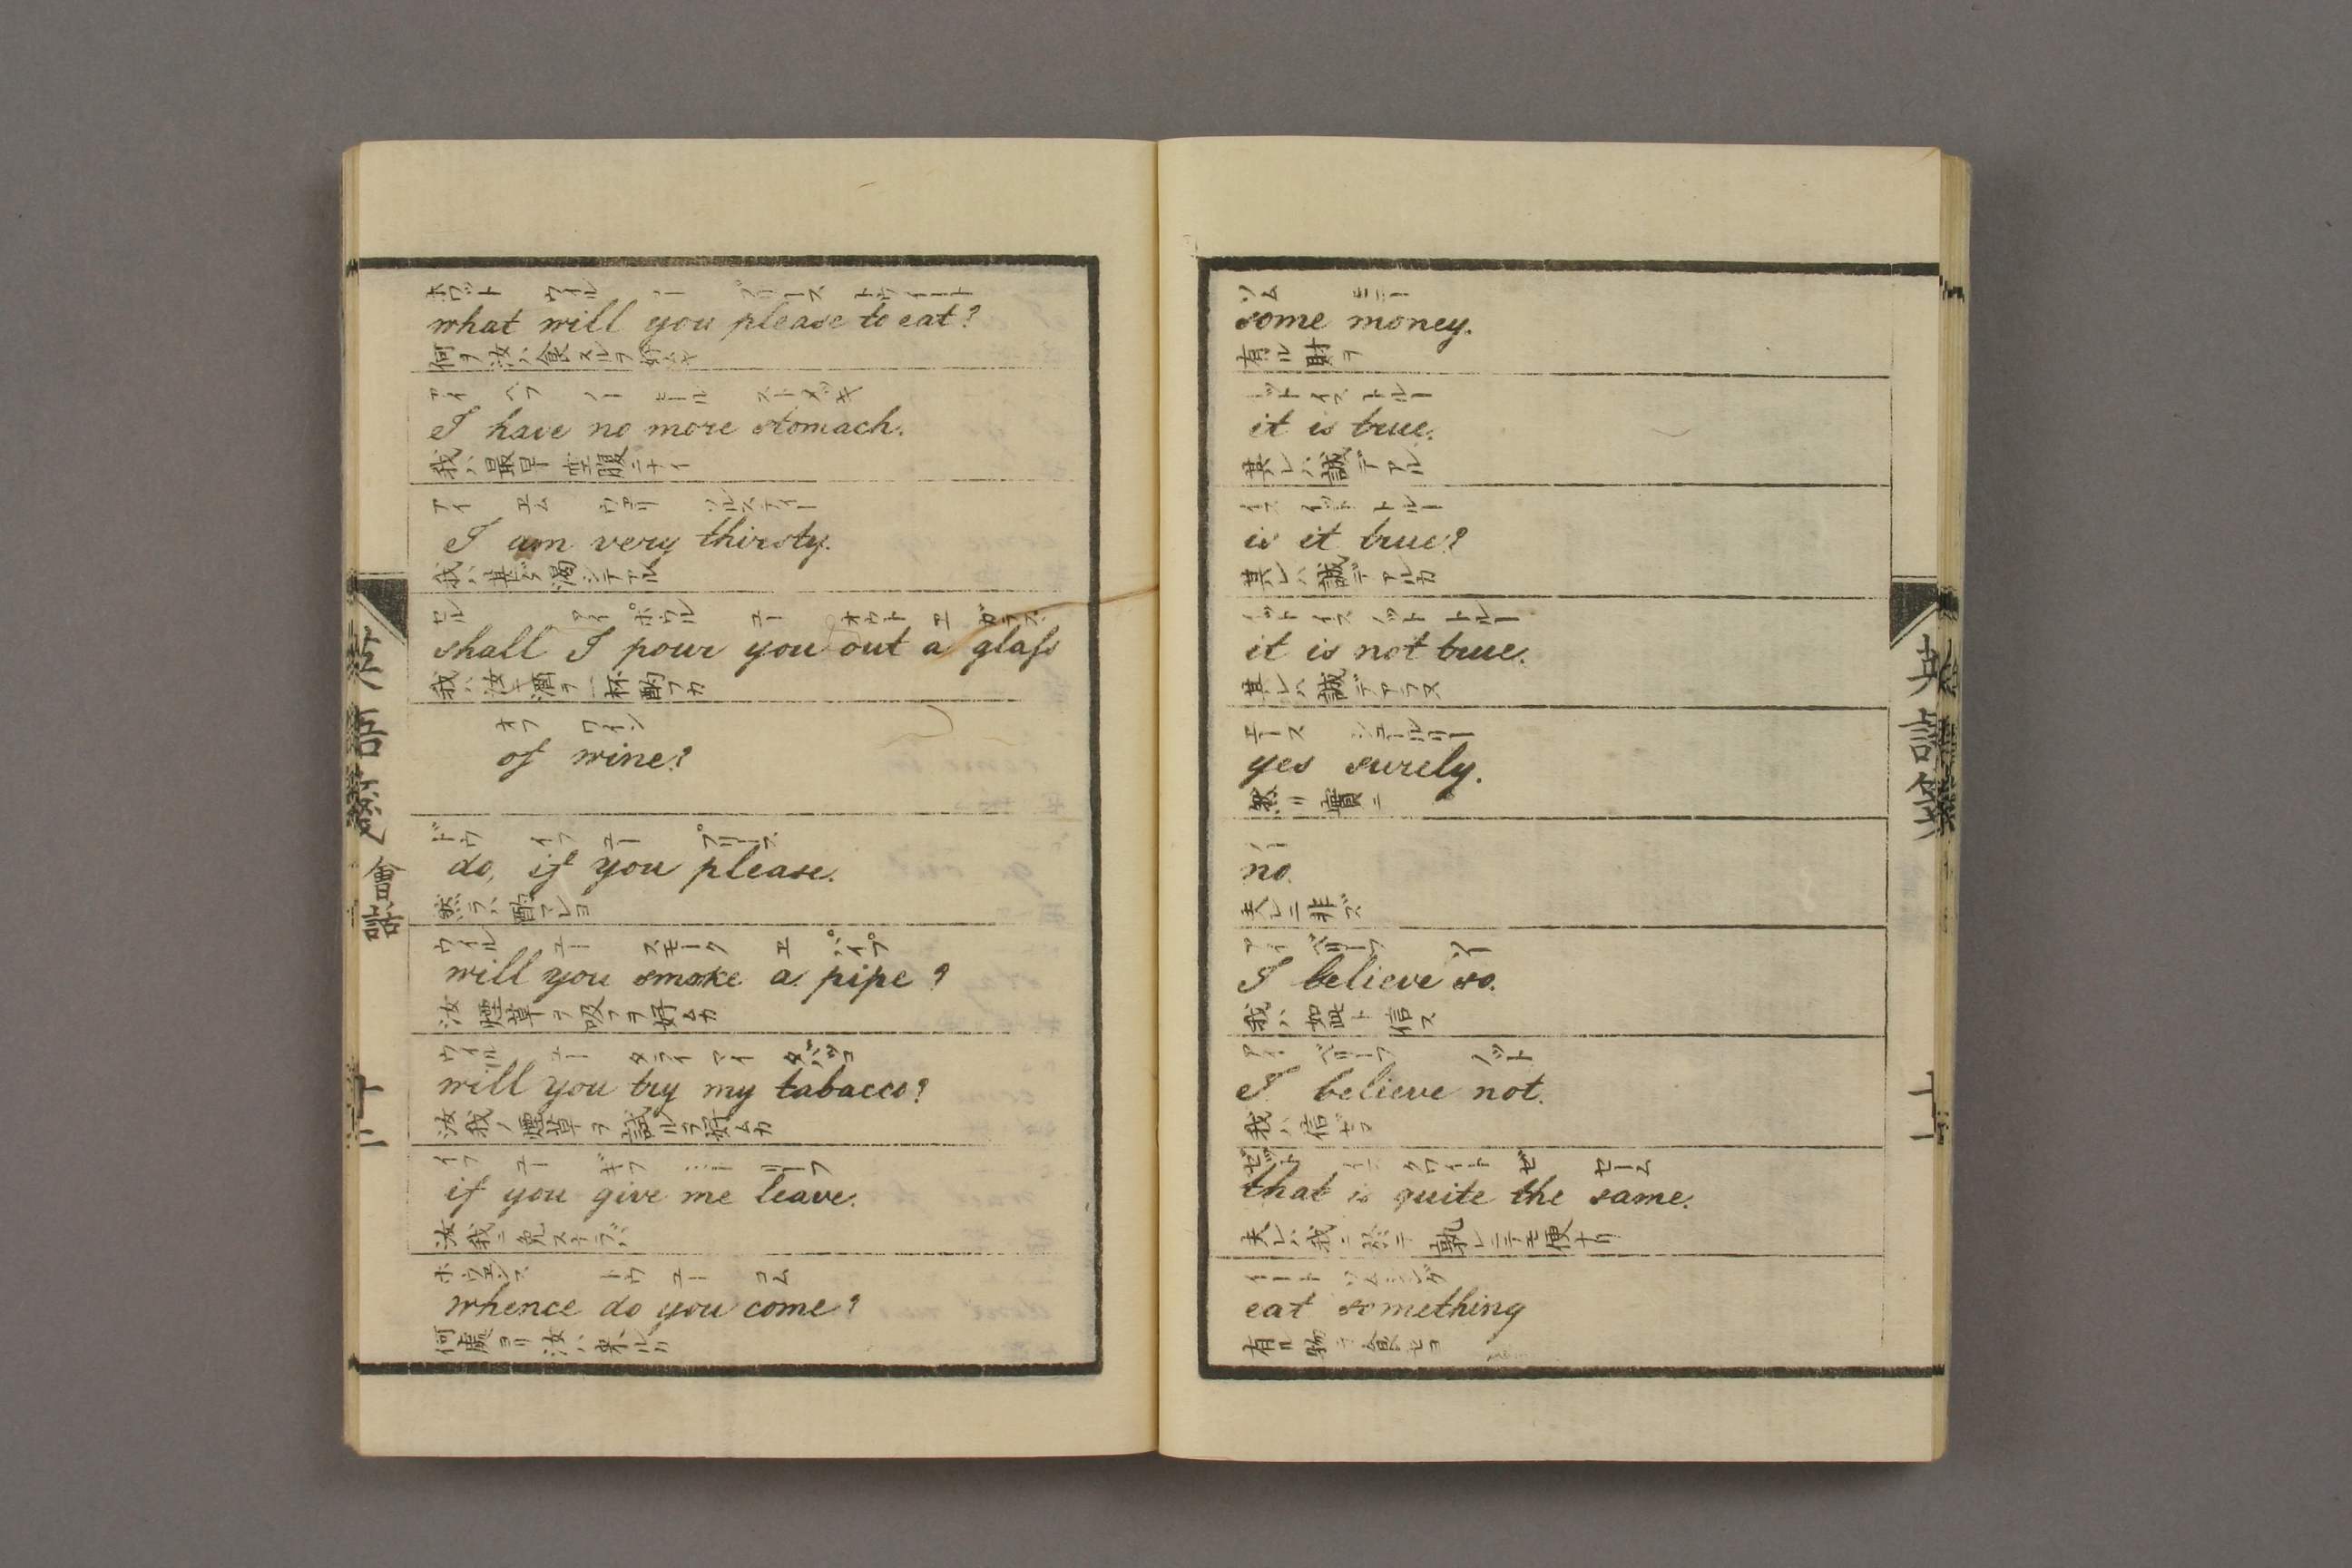 ホウット ウィル ユー プリース トウ イート
what will you please to eat?
何ヲ汝ハ食スルヲ好ムヤ
アイ ヘフ ノー モール ストーメッキ
I have no more stomach.
我ハ最早空腹ニナイ
アイ エム ウェリー ソルスティー
I am very thirsty.
我ハ甚ダ渇シテアル
アイ ポウル ユー オウト エ ガラス
shall I pour you out a glass
我ハ汝ニ酒ヲ一杯酌フカ
オフ ワイン
of wine?
ドウ イフ ユー プリース
do, if you please.
然ラハ酌マレヨ
ウィル ユー スモーク エ パイプ
will you smoke a pipe?
汝煙草ヲ吸フヲ好ムカ
ウィル ユー タライ マイ タバッコ
will you try my tabacco?
汝我ノ煙草ヲ試ルヲ好ムカ
イフ ユー ギフ ミー リーフ
if you give me leave.
汝我ニ免スナラバ
ホウエンス ドウ ユー コム
whence do you come?
何處ヨリ汝ハ来ルカ
會話
ソム モニー
some money.
有ル財ヲ
イット イス トルー
it is true.
其レハ誠デアル
イス イット トルー
is it true?
其レハ誠デアルカ
イット イス ノット トルー
it is not true.
其レハ誠デアラヌ
エース シュールリー
yes surely.
然リ實ニ
ノー
no.
夫レニ非ズ
アイ ベリーフ ソー
I believe so.
我ハ如此ト信ス
アイ ベリーフ ノット
I believe not.
我ハ信ゼヌ
ゼット イス クワイト ゼ セーム
that is quite the same.
夫レハ我ニ於テ孰レニテモ便ナリ
イート ソムシング
eat something
有ル物ヲ食セヨ